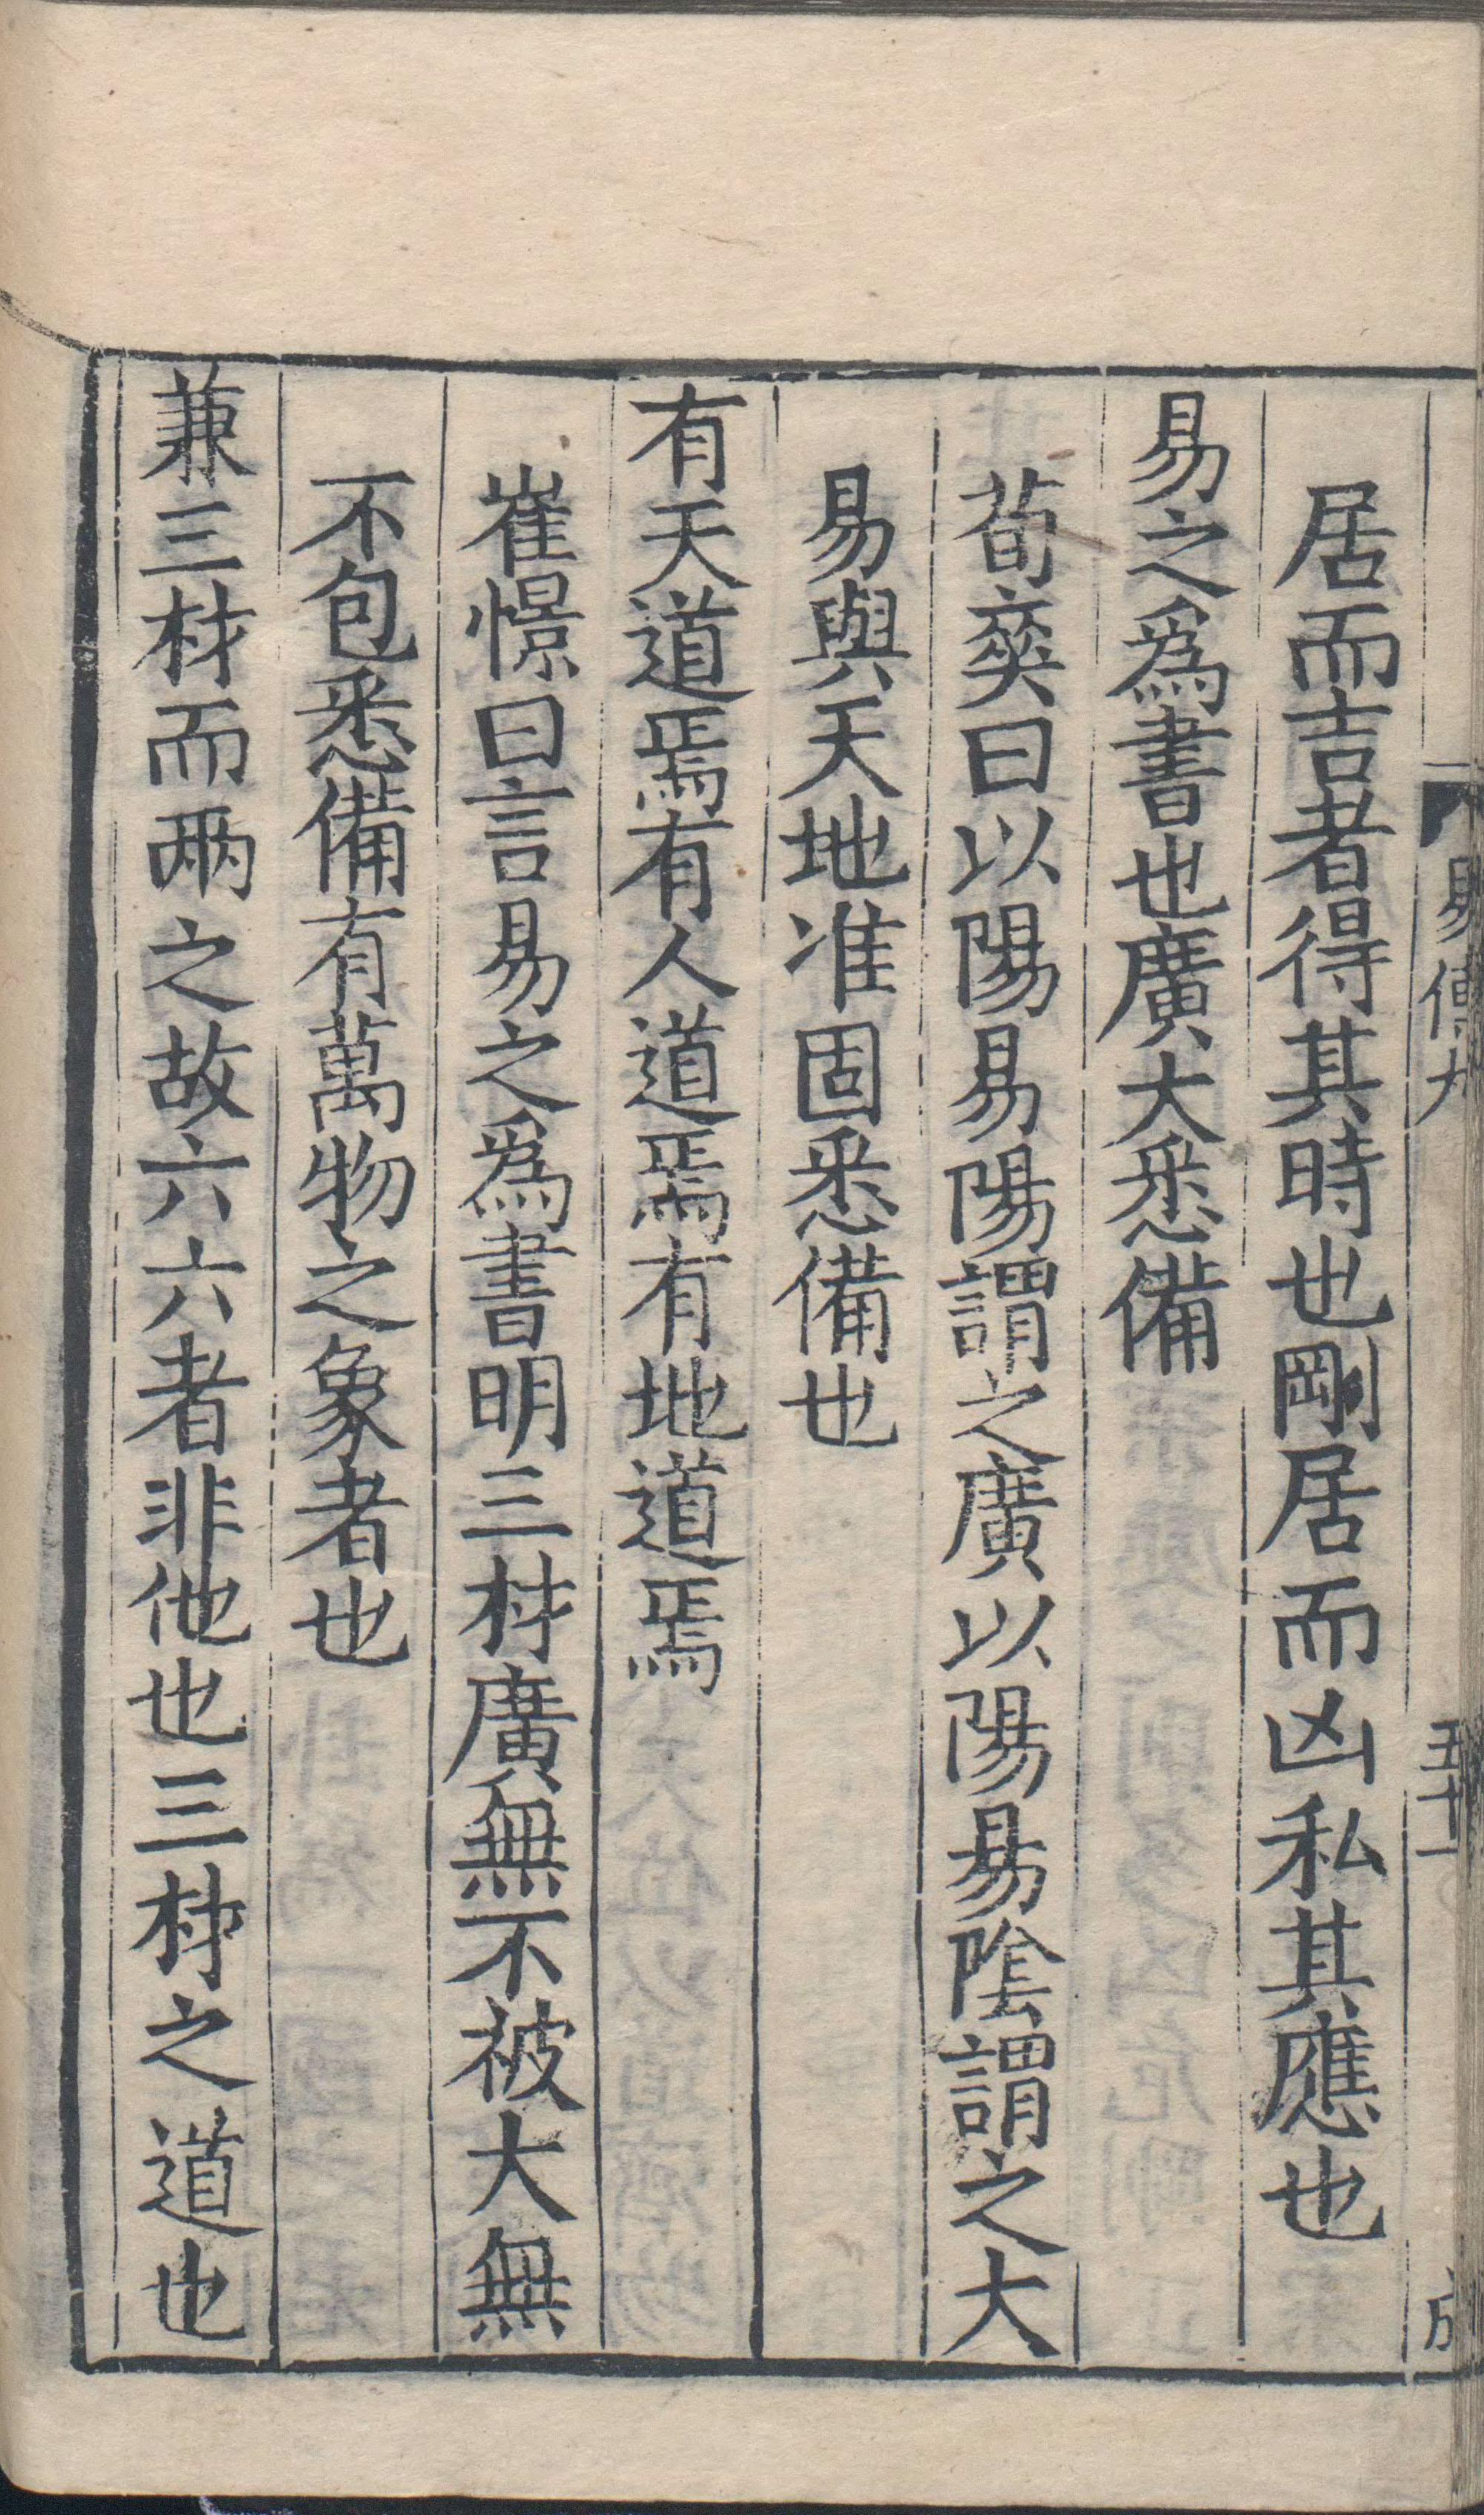 易傳九
五十一
居而吉者得其時也剛居而凶私其應也
易之爲書也廣大悉備
荀爽曰以陽易陽謂之廣以陽易陰謂之大
易與天地准固悉備也
有天道焉有人道焉有地道焉
崔憬曰言易之爲書明三材廣無不被大無
不包悉備有萬物之象者也
兼三材而兩之故六六者非他也三材之道也